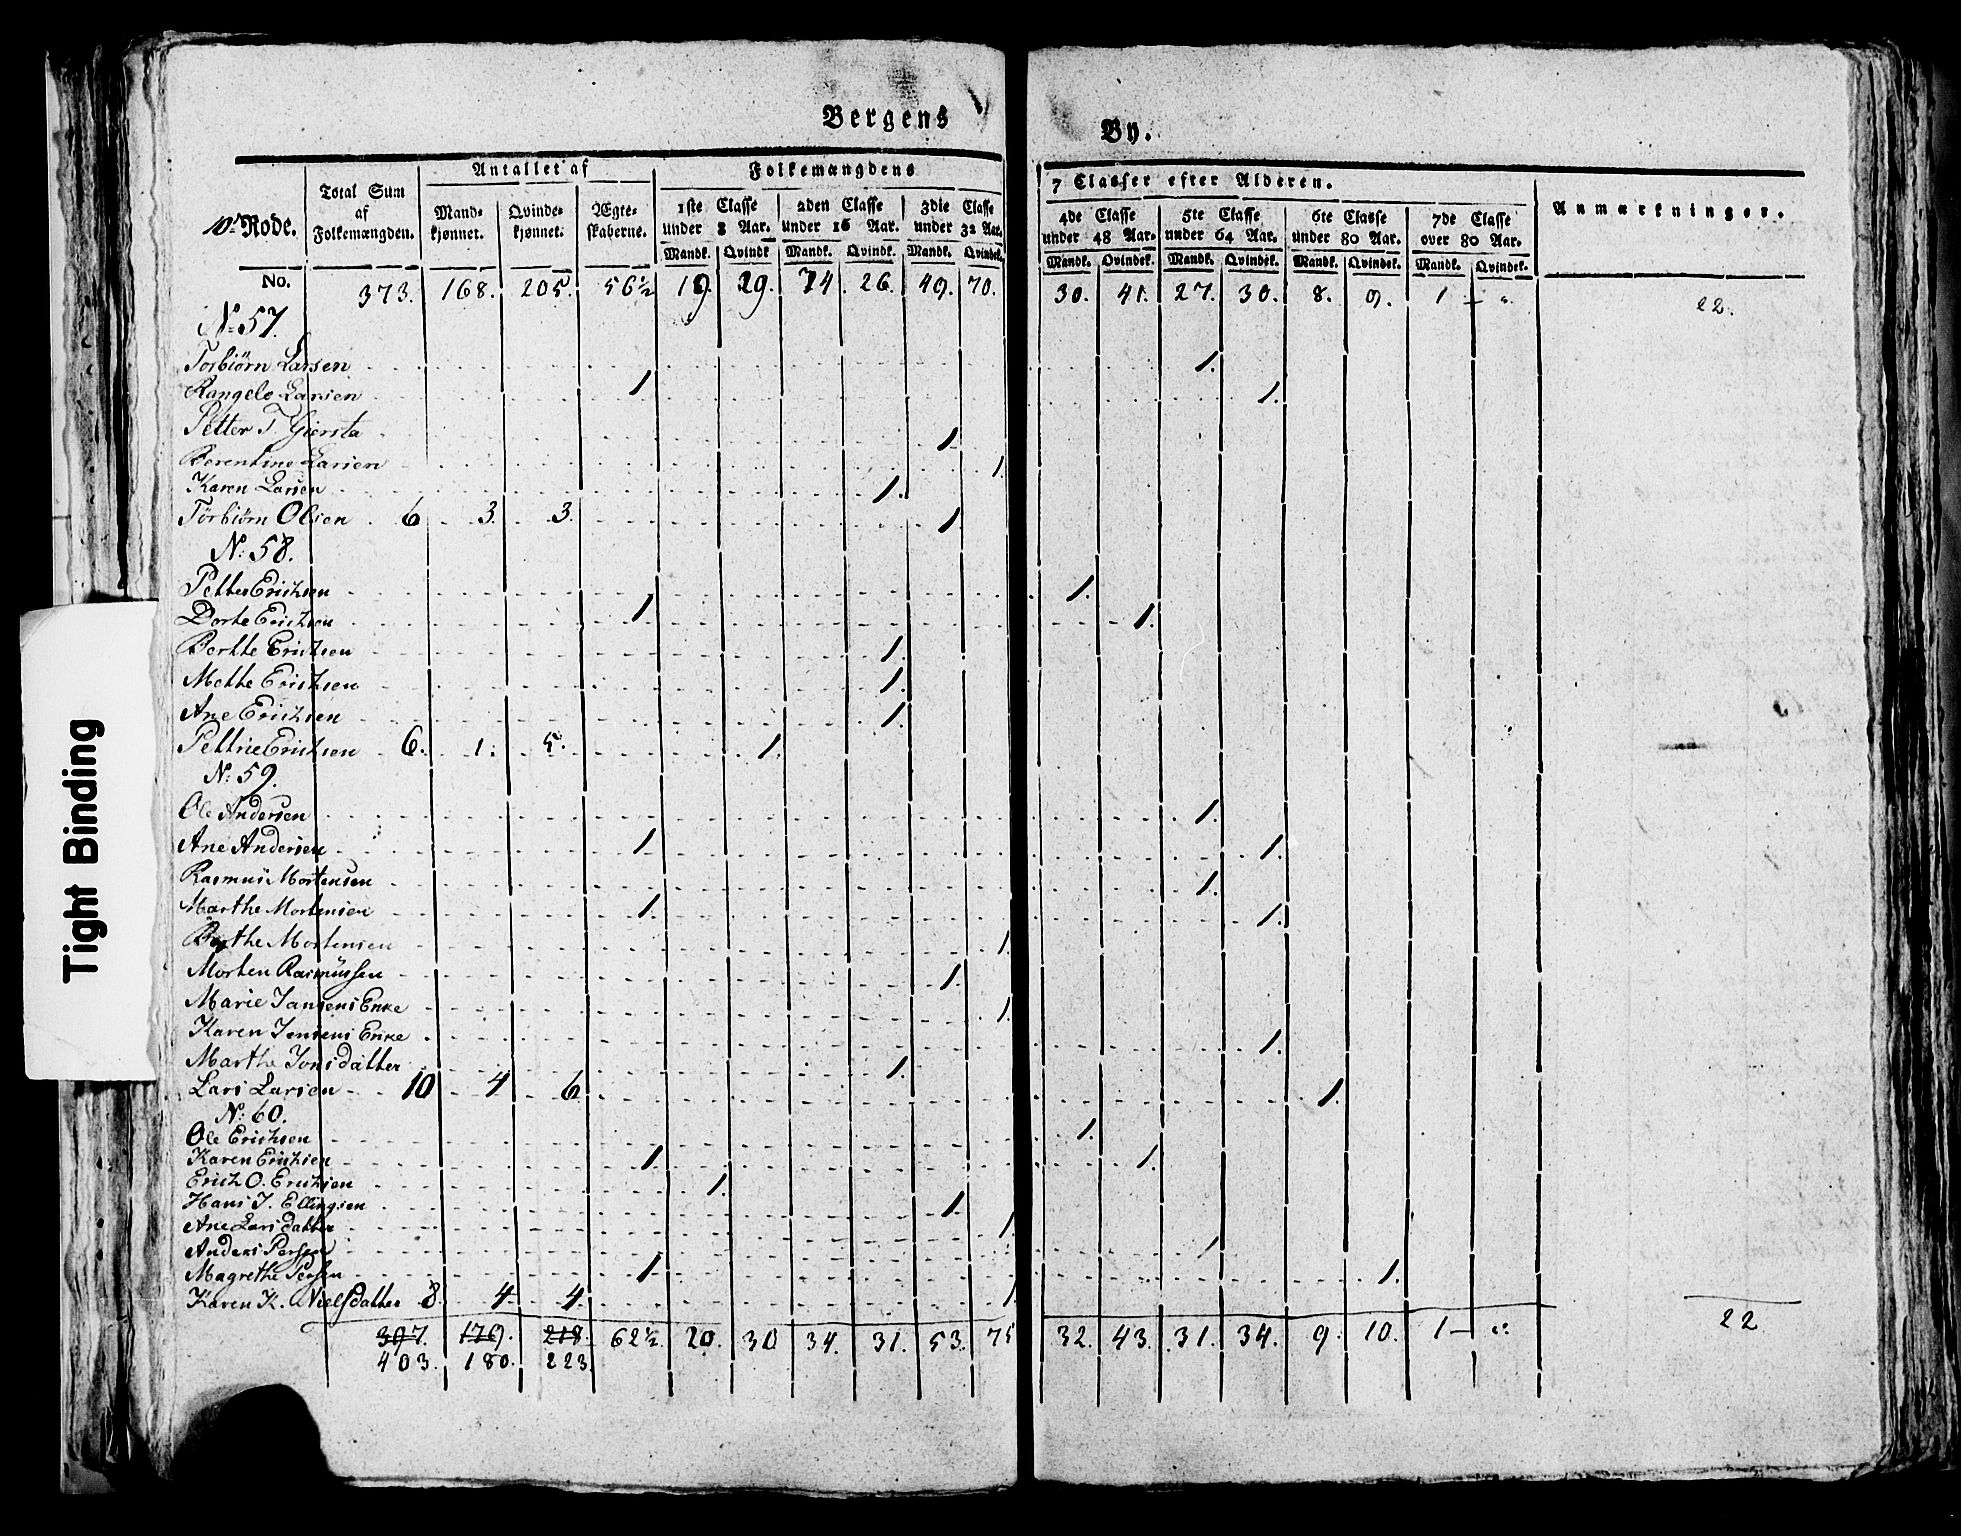 Bergens By.
10de Rode.
Total Sum af Folkemængden.
Antallet af
Mandkjønnet. Qvindekjønnet. Ægteskaberne.
Folkemængdens 7 Classer efter Alderen.
1ste Classe under 8 Aar. 2den Classe under 16 Aar. 3die Classe under 32 Aar. 4de Classe under 48 Aar. 5te Classe under 64 Aar. 6te Classe under 80 Aar. 7de Classe over 80 Aar.
Anmærkninger.
Mandk. Qvindk. Mandk. Qvindk. Mandk. Qvindek. Mandk. Qvindek. Mandk. Qvindek. Mandk. Qvindek. Mandk. Qvindek.
No. 373. 168. 205. 56½ 19. 29. 34. 26. 49. 70. 30. 41. 27. 30. 8. 9. 1 „ 22.
No 57.
Torbiörn Larsen 1.
Rangele Larsen 1 1.
Petter T Giersta 1
Berentine Larsen 1.
Karen Larsen 1.
Törbiörn Olsen 6 3. 3. 1.
N: 58.
Petter Erichsen 1.
Dorte Erichsen 1 1.
Berthe Erichsen 1.
Methe Erichsen 1.
Ane Erichsen 1.
Pettrie Erichsen 6. 1. 5. 1.
N: 59.
Ole Andersen 1.
Ane Andersen 1 1.
Rasmus Mortensen 1.
Marthe Mortensen 1. 1.
Berthe Mortensen 1.
Morten Rasmüssen 1.
Marie Jansens Enke 1.
Karen Jensens Enke 1.
Marthe Jonsdatter 1.
Lars Larsen 10 4 6 1.
N: 60.
Ole Erichsen 1.
Karen Erichsen 1. 1.
Erich O. Erichsen 1.
Hans J. Ellingsen 1.
Ane Larsdatter 1
Anders Persen 1
Magrethe Persen 1 1.
Karen K. Nielsdatter 8. 4 4. 1.
397. 179. 218. 62½. 20. 30 34. 31. 53. 75 32. 43. 31. 34. 9. 10. 1 „ 22
403. 180. 223.
Tight Binding